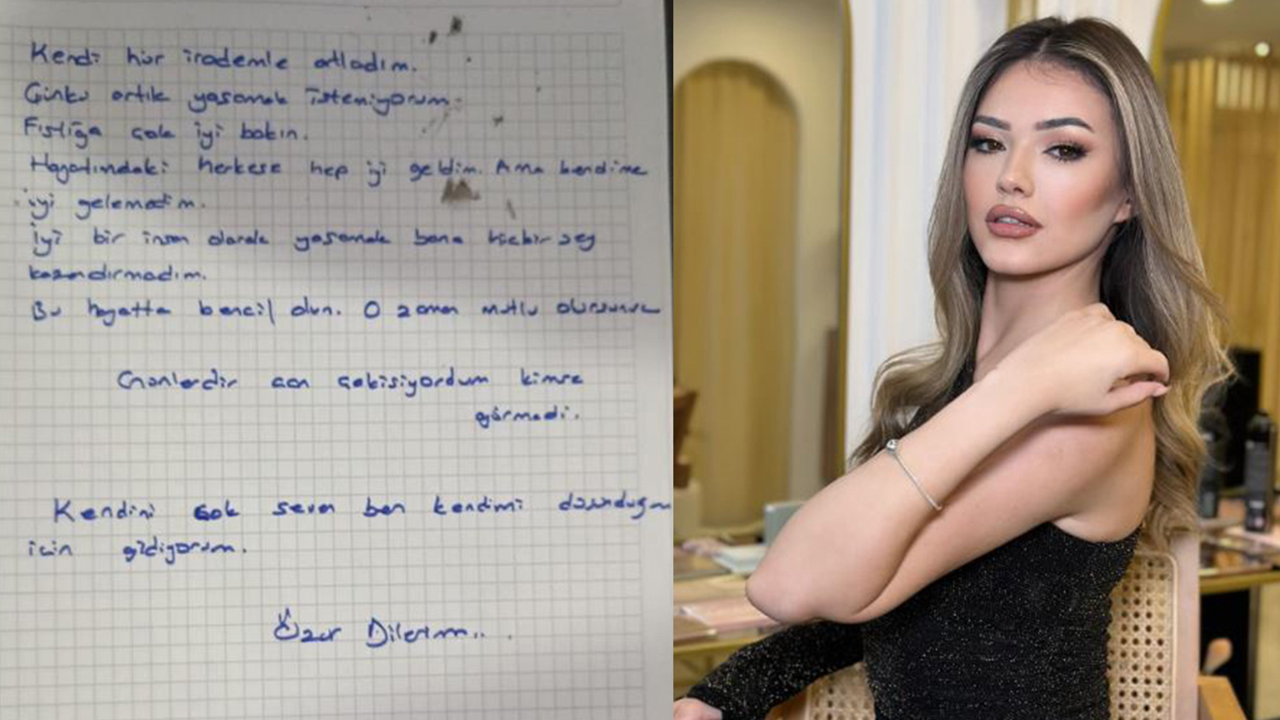 Kendi hür irademle atladım.
Çünkü artık yaşamak istemiyorum.
Fıstığa çok iyi bakın.
Hayatımdaki herkese hep iyi geldim. Ama kendime
iyi gelemedim.
İyi bir insan olarak yaşamak bana hiçbir şey
kazandırmadım.
Bu hayatta bencil olun. O zaman mutlu olursunuz
Günlerdir can çekişiyordum kimse
görmedi.
Kendini çok seven ben kendimi düşündüğüm
için gidiyorum.
Özür Dilerim..